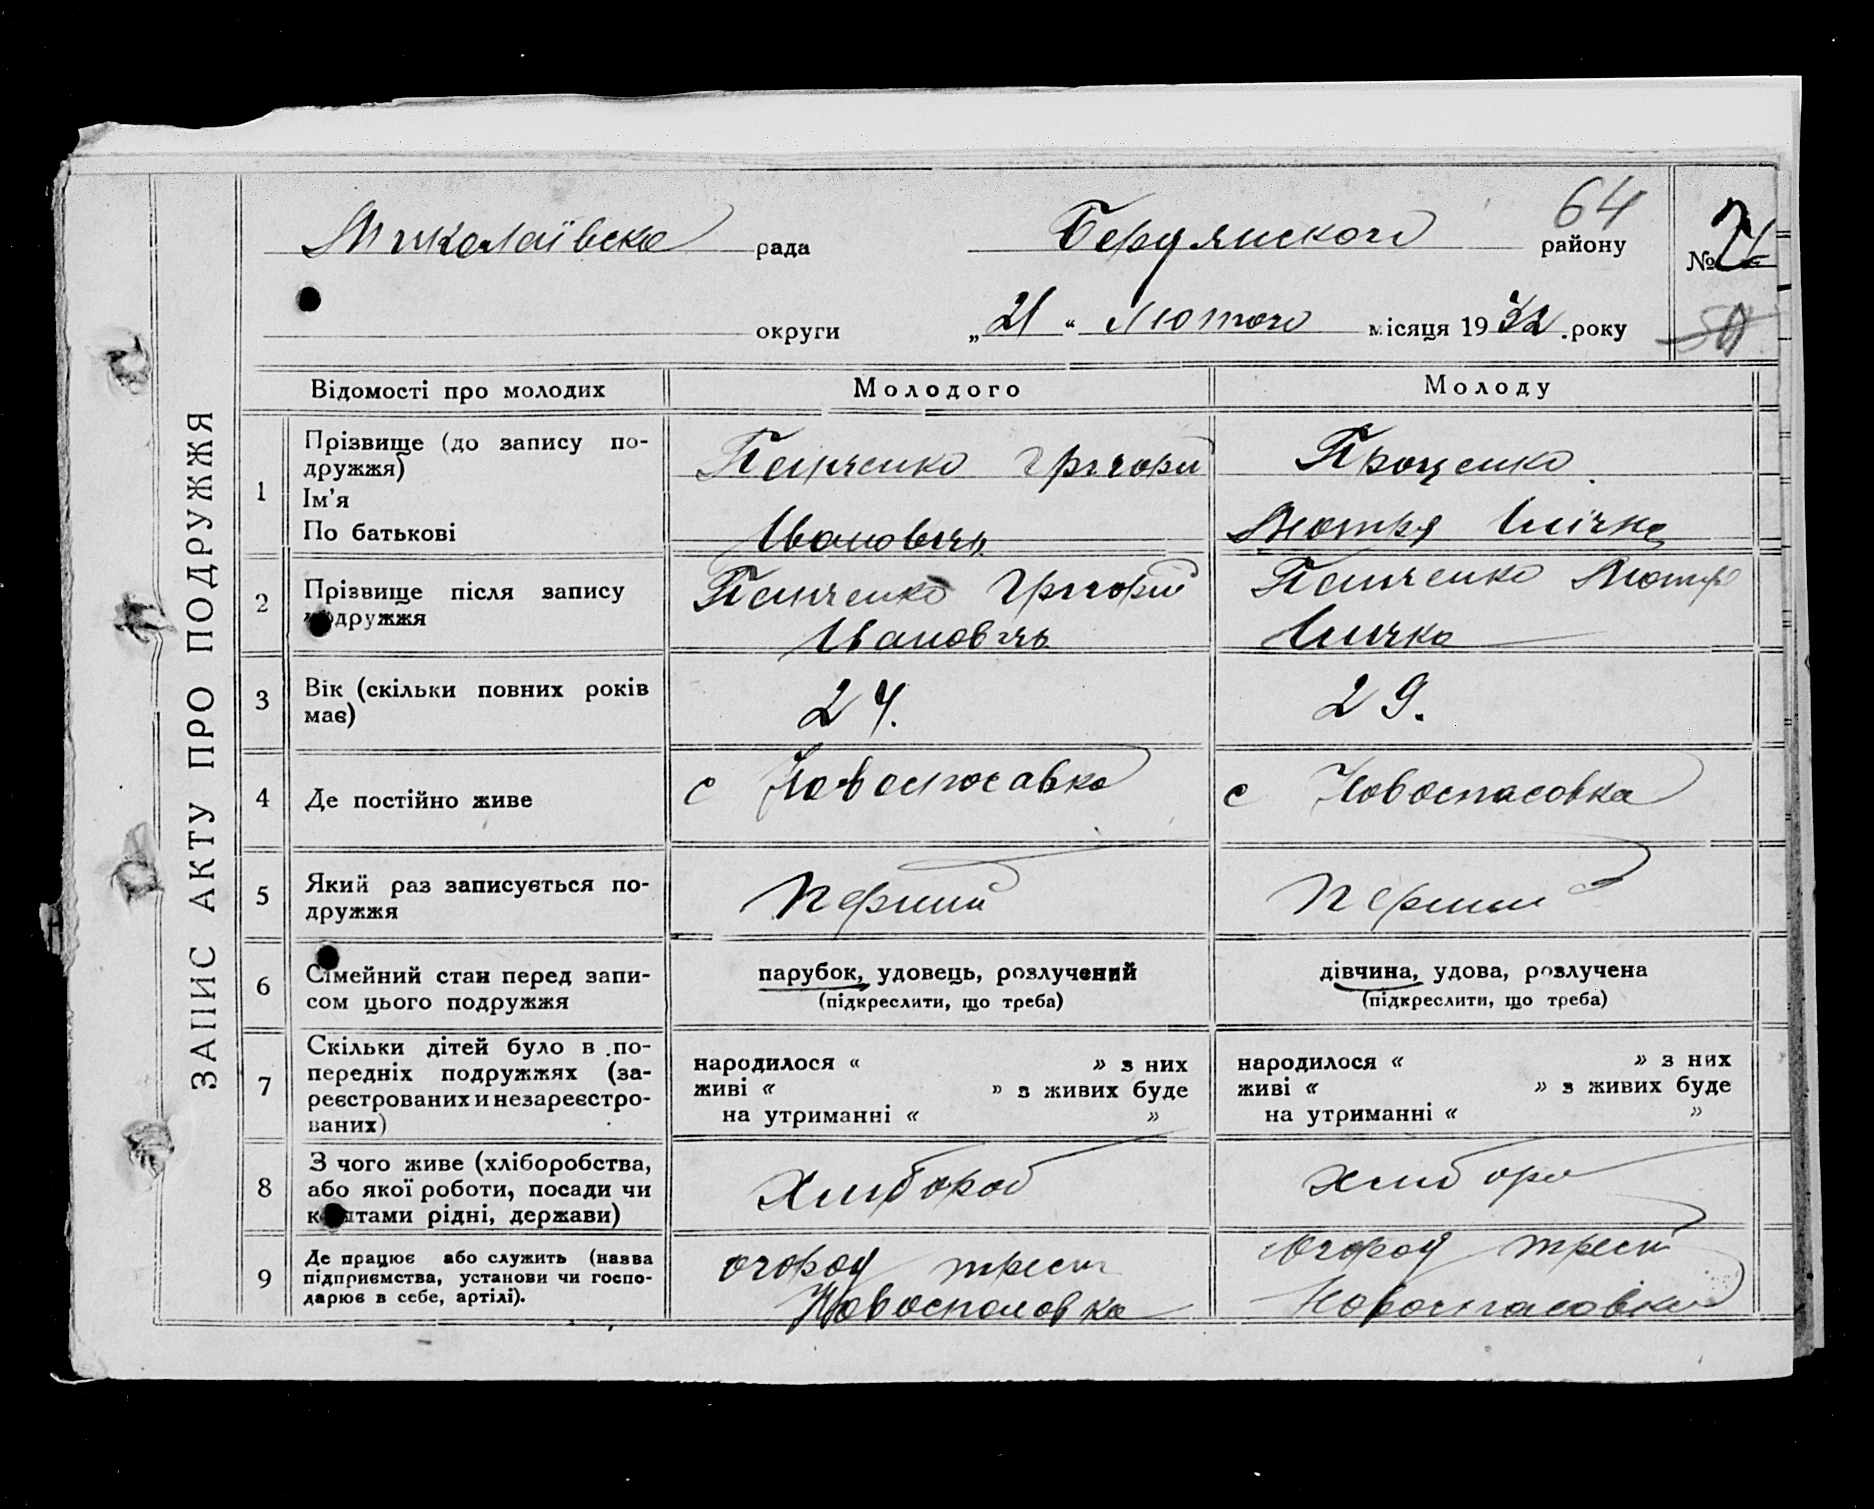 ЗАПИС АКТУ ПРО ПОДРУЖЖЯ
64
Миколаївска рада Бердянского району № 21
округи „21“ Лютого місяця 1932 .року
50
Відомості про молодих Молодого Молоду
1 Прізвище (до запису по-
дружжя)
Ім'я
По батькові
Панченко Григори
Ивановичь
Проценко
Мотря Илічна
2 Прізвище після запису
подружжя
Панченко Григорий
Ивановичь
Панченко Мотря
Иличка
3 Вік (скільки повних років
має)
24.
29.
4 Де постійно живе
с Новоспасавка
с Новоспасовка
5 Який раз записується по-
дружжя
Перший
Перший
6 Сімейний стан перед запи-
сом цього подружжя
парубок, удовець, розлучений
(підкреслити, що треба)
дівчина, удова, розлучена
(підкреслити, що треба)
7 Скільки дітей було в по-
передніх подружжях (за-
реєстрованих и незареєстро-
ваних)
народилося « » з них
живі « » з живих буде
на утриманні « »
народилося « » з них
живі « » з живих буде
на утриманні « »
8 З чого живе (хліборобства,
або якої роботи, посади чи
коштами рідні, держави)
Хлибороб
Хлиборо
9 Де працює або служить (назва
підприємства, установи чи госпо-
дарює в себе, артілі).
огород трест
Новоспасовка
огород трест
Новоспасовка